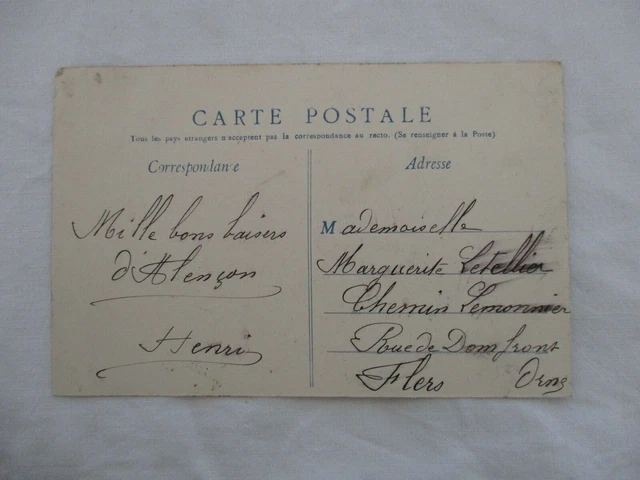 CARTE POSTALE
Tous les pays etrangers n'acceptent pas la correspondance au recto. (Se renseigner à la Poste)
Correspondance
Adresse
Mille bons baisers
d'Alençon
Henri
Mademoiselle
Marguerite Letellier
Chemin Lemonnier
Rue de Domfront
Flers Orne